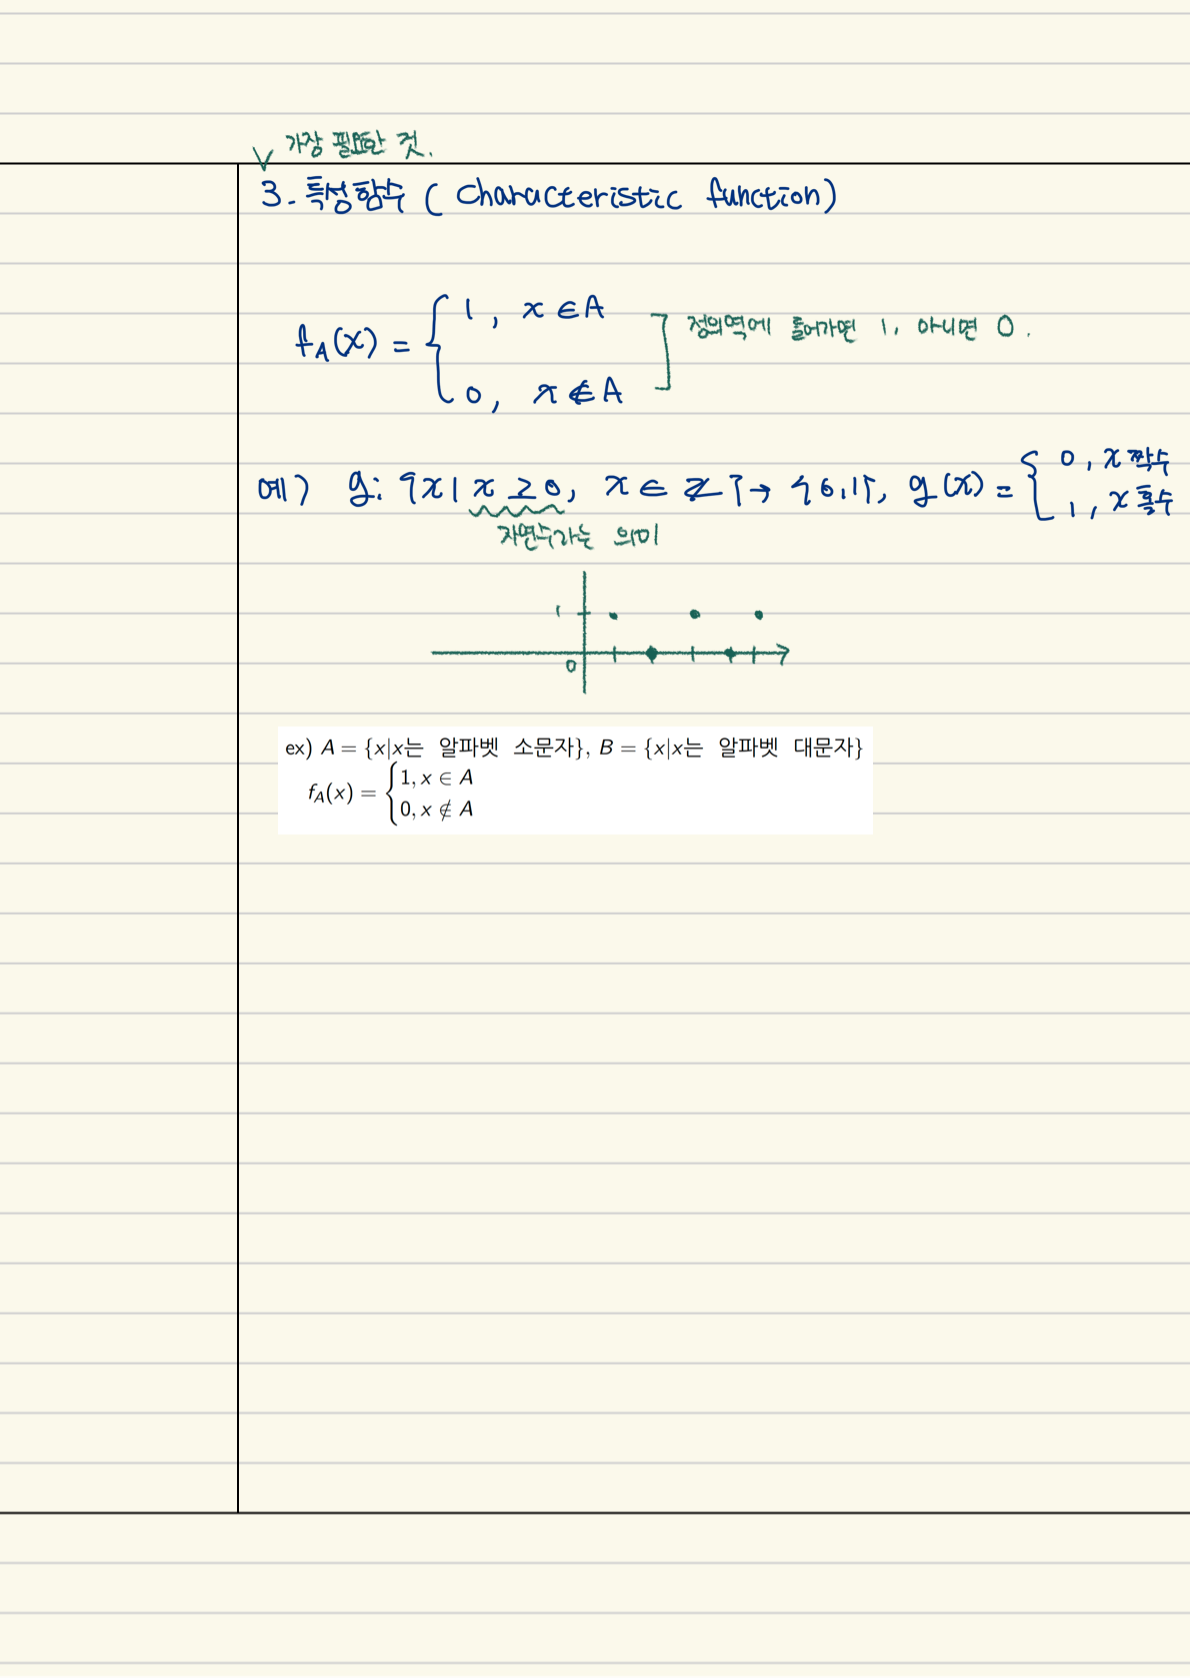 가장 필요한 것.
3. 특성함수 ( Characteristic function)
f_A(x) = { 1, x ∈ A
정의역에 들어가면 1, 아니면 0.
0, x ∉ A
예) g: {x | x ≥ 0, x ∈ Z} → {0,1}, g(x) = { 0, x 짝수
1, x 홀수
자연수라는 의미
1
0
ex) A = {x|x는 알파벳 소문자}, B = {x|x는 알파벳 대문자}
f_A(x) = { 1, x ∈ A
0, x ∉ A